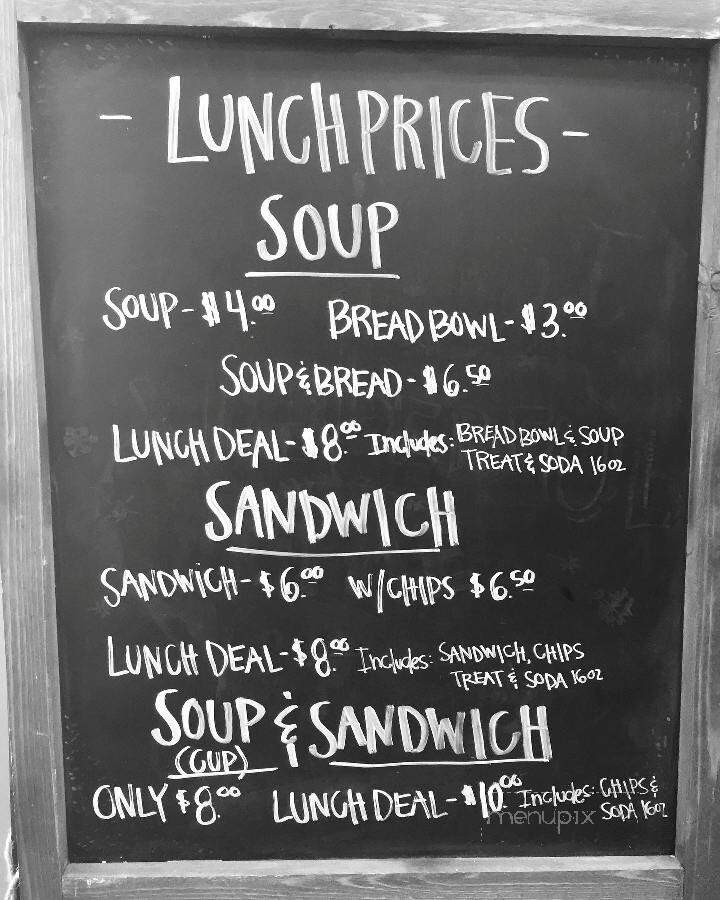 - LUNCH PRICES -
SOUP
SOUP - $4.00 BREAD BOWL - $3.00
SOUP & BREAD - $6.50
LUNCH DEAL - $8.00 Includes: BREAD BOWL & SOUP
TREAT & SODA 16oz
SANDWICH
SANDWICH - $6.00 W/CHIPS $6.50
LUNCH DEAL - $8.00 Includes: SANDWICH, CHIPS
TREAT & SODA 16oz
SOUP & SANDWICH
(CUP)
ONLY $8.00 LUNCH DEAL - $10.00 Includes: CHIPS &
SODA 16oz
menupix